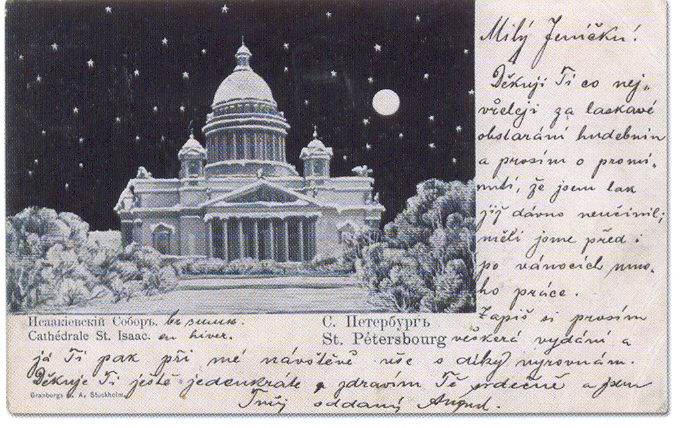 Milý Jeníčku!
Děkuji Ti co nej-
vřeleji za laskavé
obstarání hudebnin
a prosím o promi-
nutí, že jsem tak
již dávno neučinil;
měli jsme před i
po vánocích mno-
ho práce.
Zapiš si prosím
veškerá vydání a
já Ti pak při mé návštěvě vše s díky vyrovnám.
Děkuje Ti ještě jedenkráte, zdravím Tě srdečně a jsem
Tvůj oddaný August.
Исаакіевскій Соборъ. въ зимѣ.
Cathédrale St. Isaac. en hiver.
С. Петербургъ
St. Pétersbourg
Granbergs A. Stockholm.